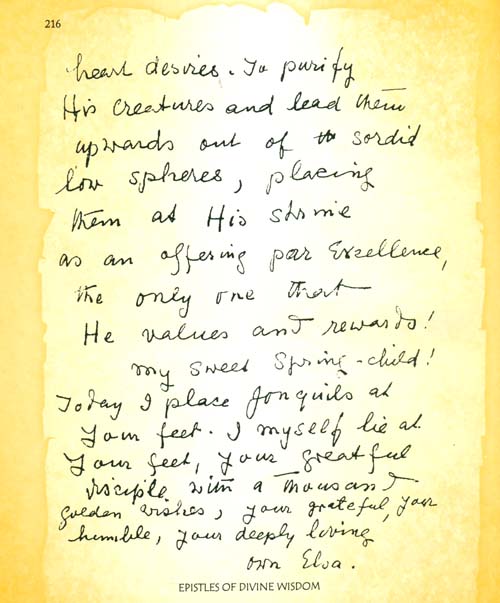 216
heart desires. To purify
His creatures and lead them
upwards out of the sordid
low spheres, placing
them at His shrine
as an offering par Excellence,
the only one that
He values and rewards!
My sweet Spring-child!
Today I place Jonquils at
Your feet. I myself lie at
Your feet, your greatful
disciple with a thousand
golden wishes, your grateful, your
humble, your deeply loving
own Elva.
EPISTLES OF DIVINE WISDOM